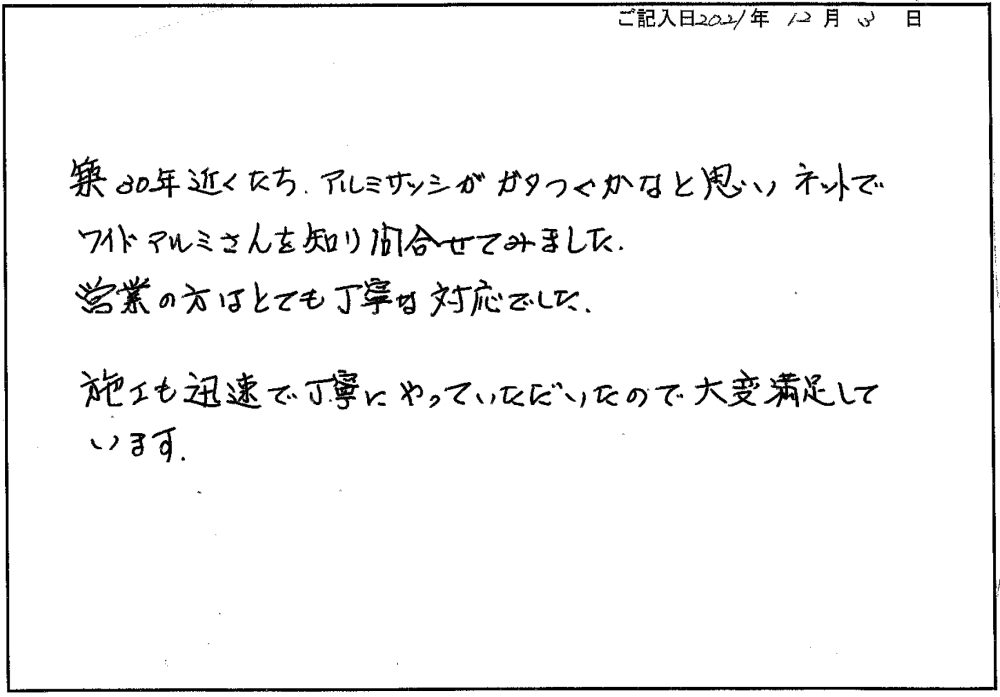 ご記入日2021年 12月 3 日
築30年近くたち、アルミサッシがガタつくかなと思い ネットで
ワイドアルミさんを知り問合せてみました。
営業の方はとても丁寧な対応でした。
施工も迅速で丁寧にやっていただいたので大変満足して
います。